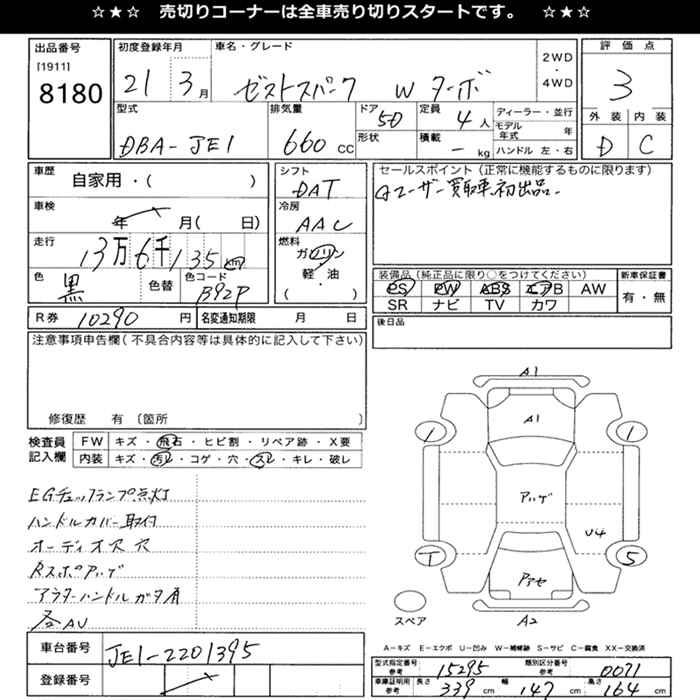 ☆★☆ 売切りコーナーは全車売り切りスタートです。 ☆★☆
出品番号
[1911]
8180
初度登録年月
21 3月
車名・グレード
ゼストスパーク W ターボ
2WD
・
4WD
評価点
3
外装 内装
D C
型式
DBA-JE1
排気量
660 CC
ドア
5D
形状
定員
4人
積載
- kg
ディーラー・並行
モデル年式 年
ハンドル 左・右
車歴
自家用・( )
車検
年 月( 日)
走行
13万6千135km
色
黒
色替
色コード
B92P
シフト
DAT
冷房
AAC
燃料
ガソリン
・
軽・油
( )
セールスポイント(正常に機能するものに限ります)
ユーザー買取車初出品
装備品(純正品に限り○をつけてください)
PS PW ABS エアB AW
SR ナビ TV カワ
新車保証書
有・無
後日品
R券 10290円
名変通知期限 月 日
注意事項申告欄(不具合内容等は具体的に記入して下さい)
修復歴 有 〔箇所 〕
検査員
記入欄
FW キズ・飛石・ヒビ割・リペア跡・X要
内装 キズ・汚レ・コゲ・穴・スレ・キレ・破レ
EGチェックランプ点灯
ハンドルカバー取付
オーディオ穴 穴
Rスポアルゲ
アウターハンドルガタ有
各AU
車台番号
JE1-2201395
登録番号
A1
A1
1 1
アルゲ
U4
T 5
アセ
A2
スペア
A-キズ E-エクボ U-凹み W-補修跡 S-サビ C-腐食 XX-交換済
型式指定番号
参考
15295
類別区分番号
参考
0071
車庫証明用
参考
長さ 339 cm 幅 147 cm 高さ 164 cm